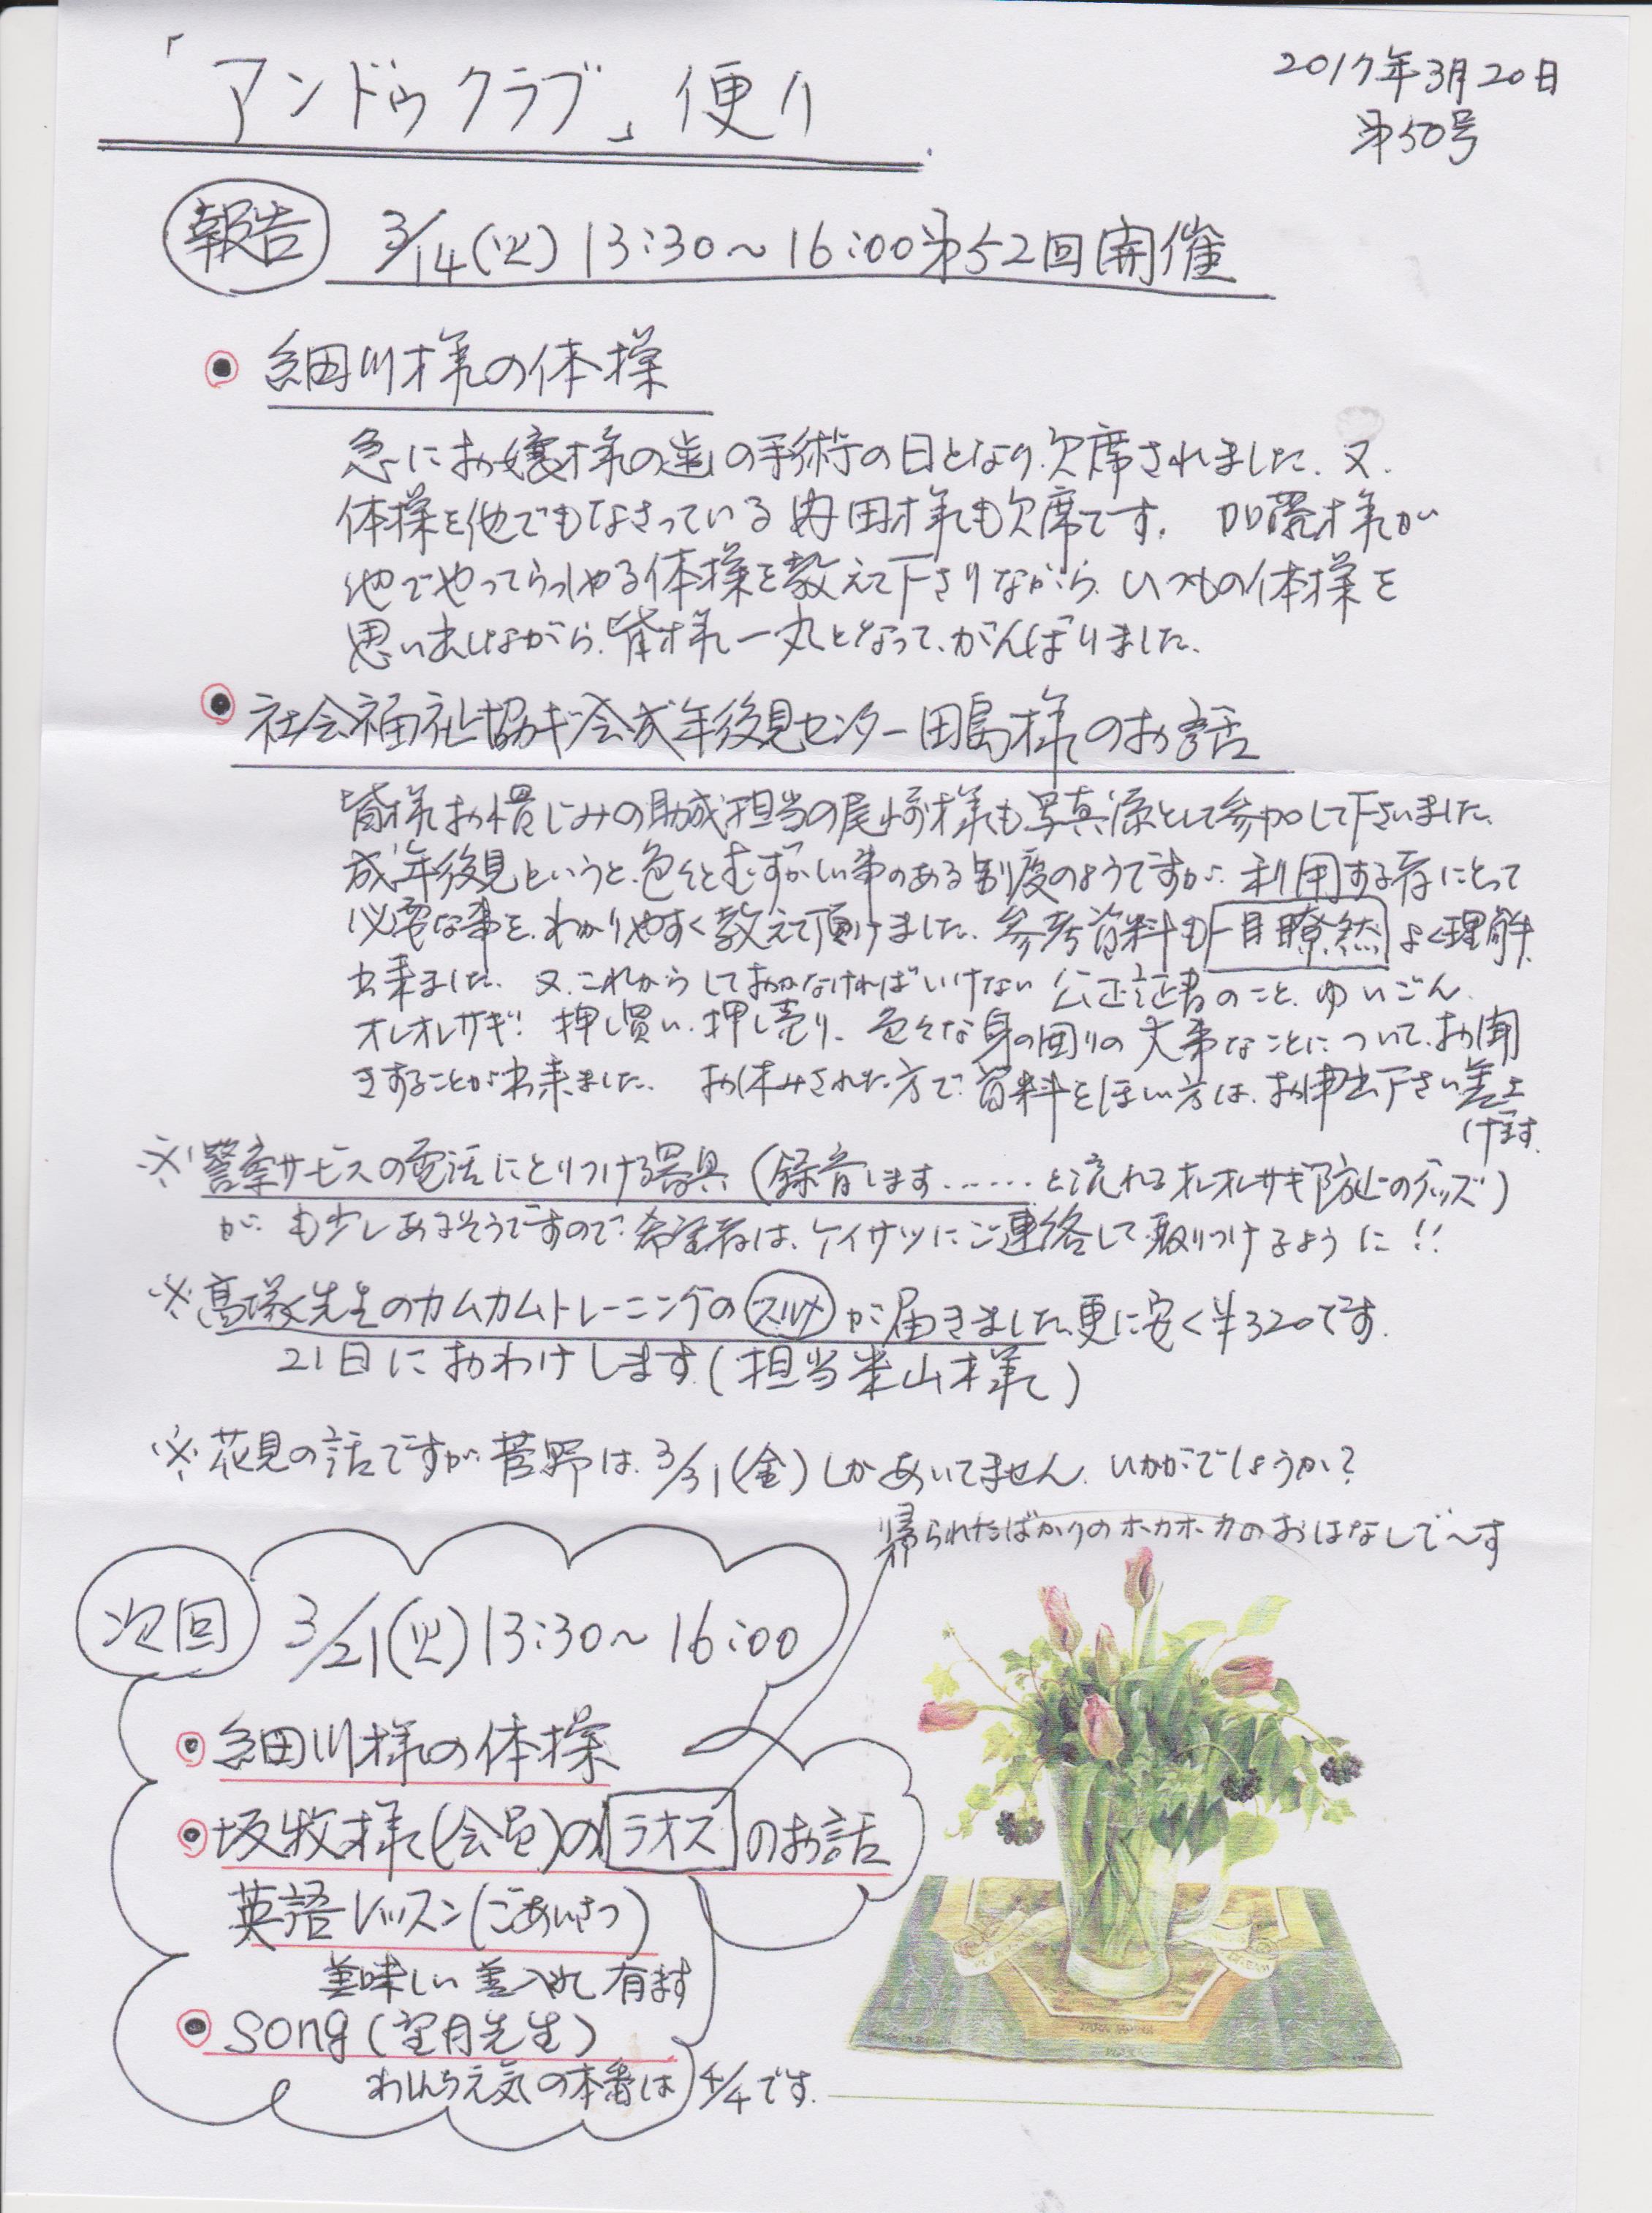 「アンドゥクラブ」便り
2017年3月20日
第50号
報告 3/14(火)13:30〜16:00第52回開催
細川様の体操
急にお嬢様の歯の手術の日となり、欠席されました。又、
体操を他でもなさっている内田様も欠席です。 加藤様が
他でやってらっしゃる体操を教えて下さりながら、いつもの体操を
思い出しながら、皆様一丸となって、がんばりました。
社会福祉協ギ会成年後見センター田島様のお話
皆様お馴じみの助成担当の尾崎様も写真係として参加して下さいました。
成年後見というと、色々とむずかしい事のある制度のようですが、利用する者にとって
必要な事を、わかりやすく教えて頂けました。参考資料も一目瞭然よく理解
出来ました。又、これからしておかなければいけない公正証書のこと、ゆいごん、
オレオレサギ! 押し買い、押し売り、色々な身の回りの大事なことについて、お聞
きすることが出来ました。 お休みされた方で、資料をほしい方は、お申出下さい差上
げます。
※警察サービスの電話にとりつける器具(録音します……と流れるオレオレサギ防止のグッズ)
が、も少しあるそうですので、希望者は、ケイサツにご連絡して取りつけるように!!
※高塚先生のカムカムトレーニングのスルメが届きました。更に安く¥320です。
21日におわけします。(担当米山様)
※花見の話ですが、菅野は、3/31(金)しかあいてません。いかがでしょうか?
帰られたばかりのホカホカのおはなしで〜す
次回 3/21(火)13:30〜16:00
細川様の体操
坂牧様(会員)のラオスのお話
英語レッスン(ごあいさつ)
美味しい差入れ有ます
song(望月先生)
わしんち元気の本番は4/4です。